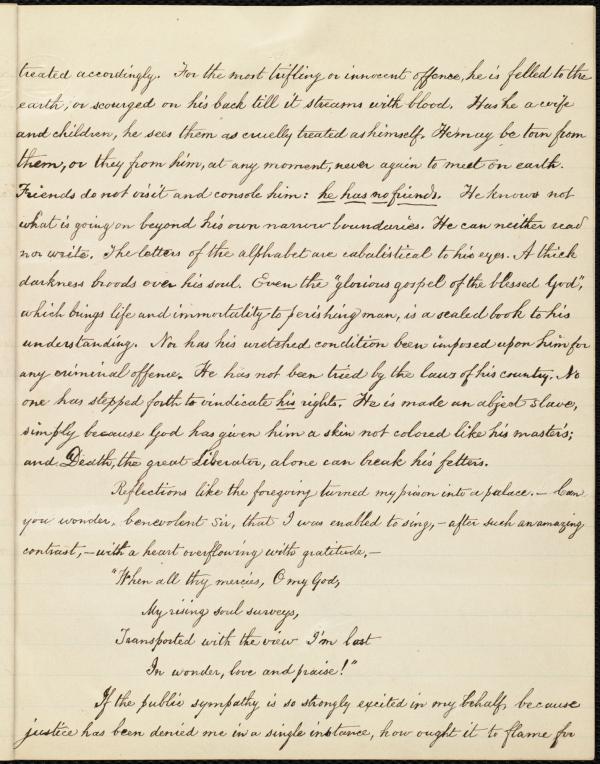 treated accordingly. For the most trifling or innocent offence, he is felled to the
earth, or scourged on his back till it streams with blood. Has he a wife
and children, he sees them as cruelly treated as himself. He may be torn from
them, or they from him, at any moment, never again to meet on earth.
Friends do not visit and console him: he has no friends. He knows not
what is going on beyond his own narrow boundaries. He can neither read
nor write. The letters of the alphabet are cabalistical to his eyes. A thick
darkness broods over his soul. Even the "glorious gospel of the blessed God",
which brings life and immortality to perishing man, is a sealed book to his
understanding. Nor has his wretched condition been imposed upon him for
any criminal offence. He has not been tried by the laws of his country. No
one has stepped forth to vindicate his rights. He is made an abject slave,
simply because God has given him a skin not colored like his master's;
and Death, the great Liberator, alone can break his fetters.
Reflections like the foregoing turned my prison into a palace. — Can
you wonder, benevolent Sir, that I was enabled to sing, – after such an amazing
contrast, – with a heart overflowing with gratitude, –
"When all thy mercies, O my God,
My rising soul surveys,
Transported with the view I'm lost
In wonder, love and praise!"
If the public sympathy is so strongly excited in my behalf, because
justice has been denied me in a single instance, how ought it to flame for